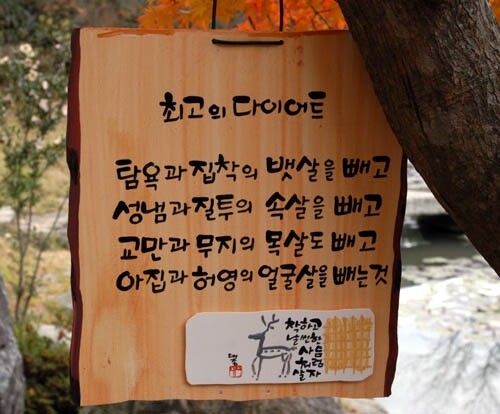 최고의 다이어트
탐욕과 집착의 뱃살을 빼고
성냄과 질투의 속살을 빼고
교만과 무지의 목살도 빼고
아집과 허영의 얼굴살을 빼는것
착하고
날씬한
사슴
처럼
살자